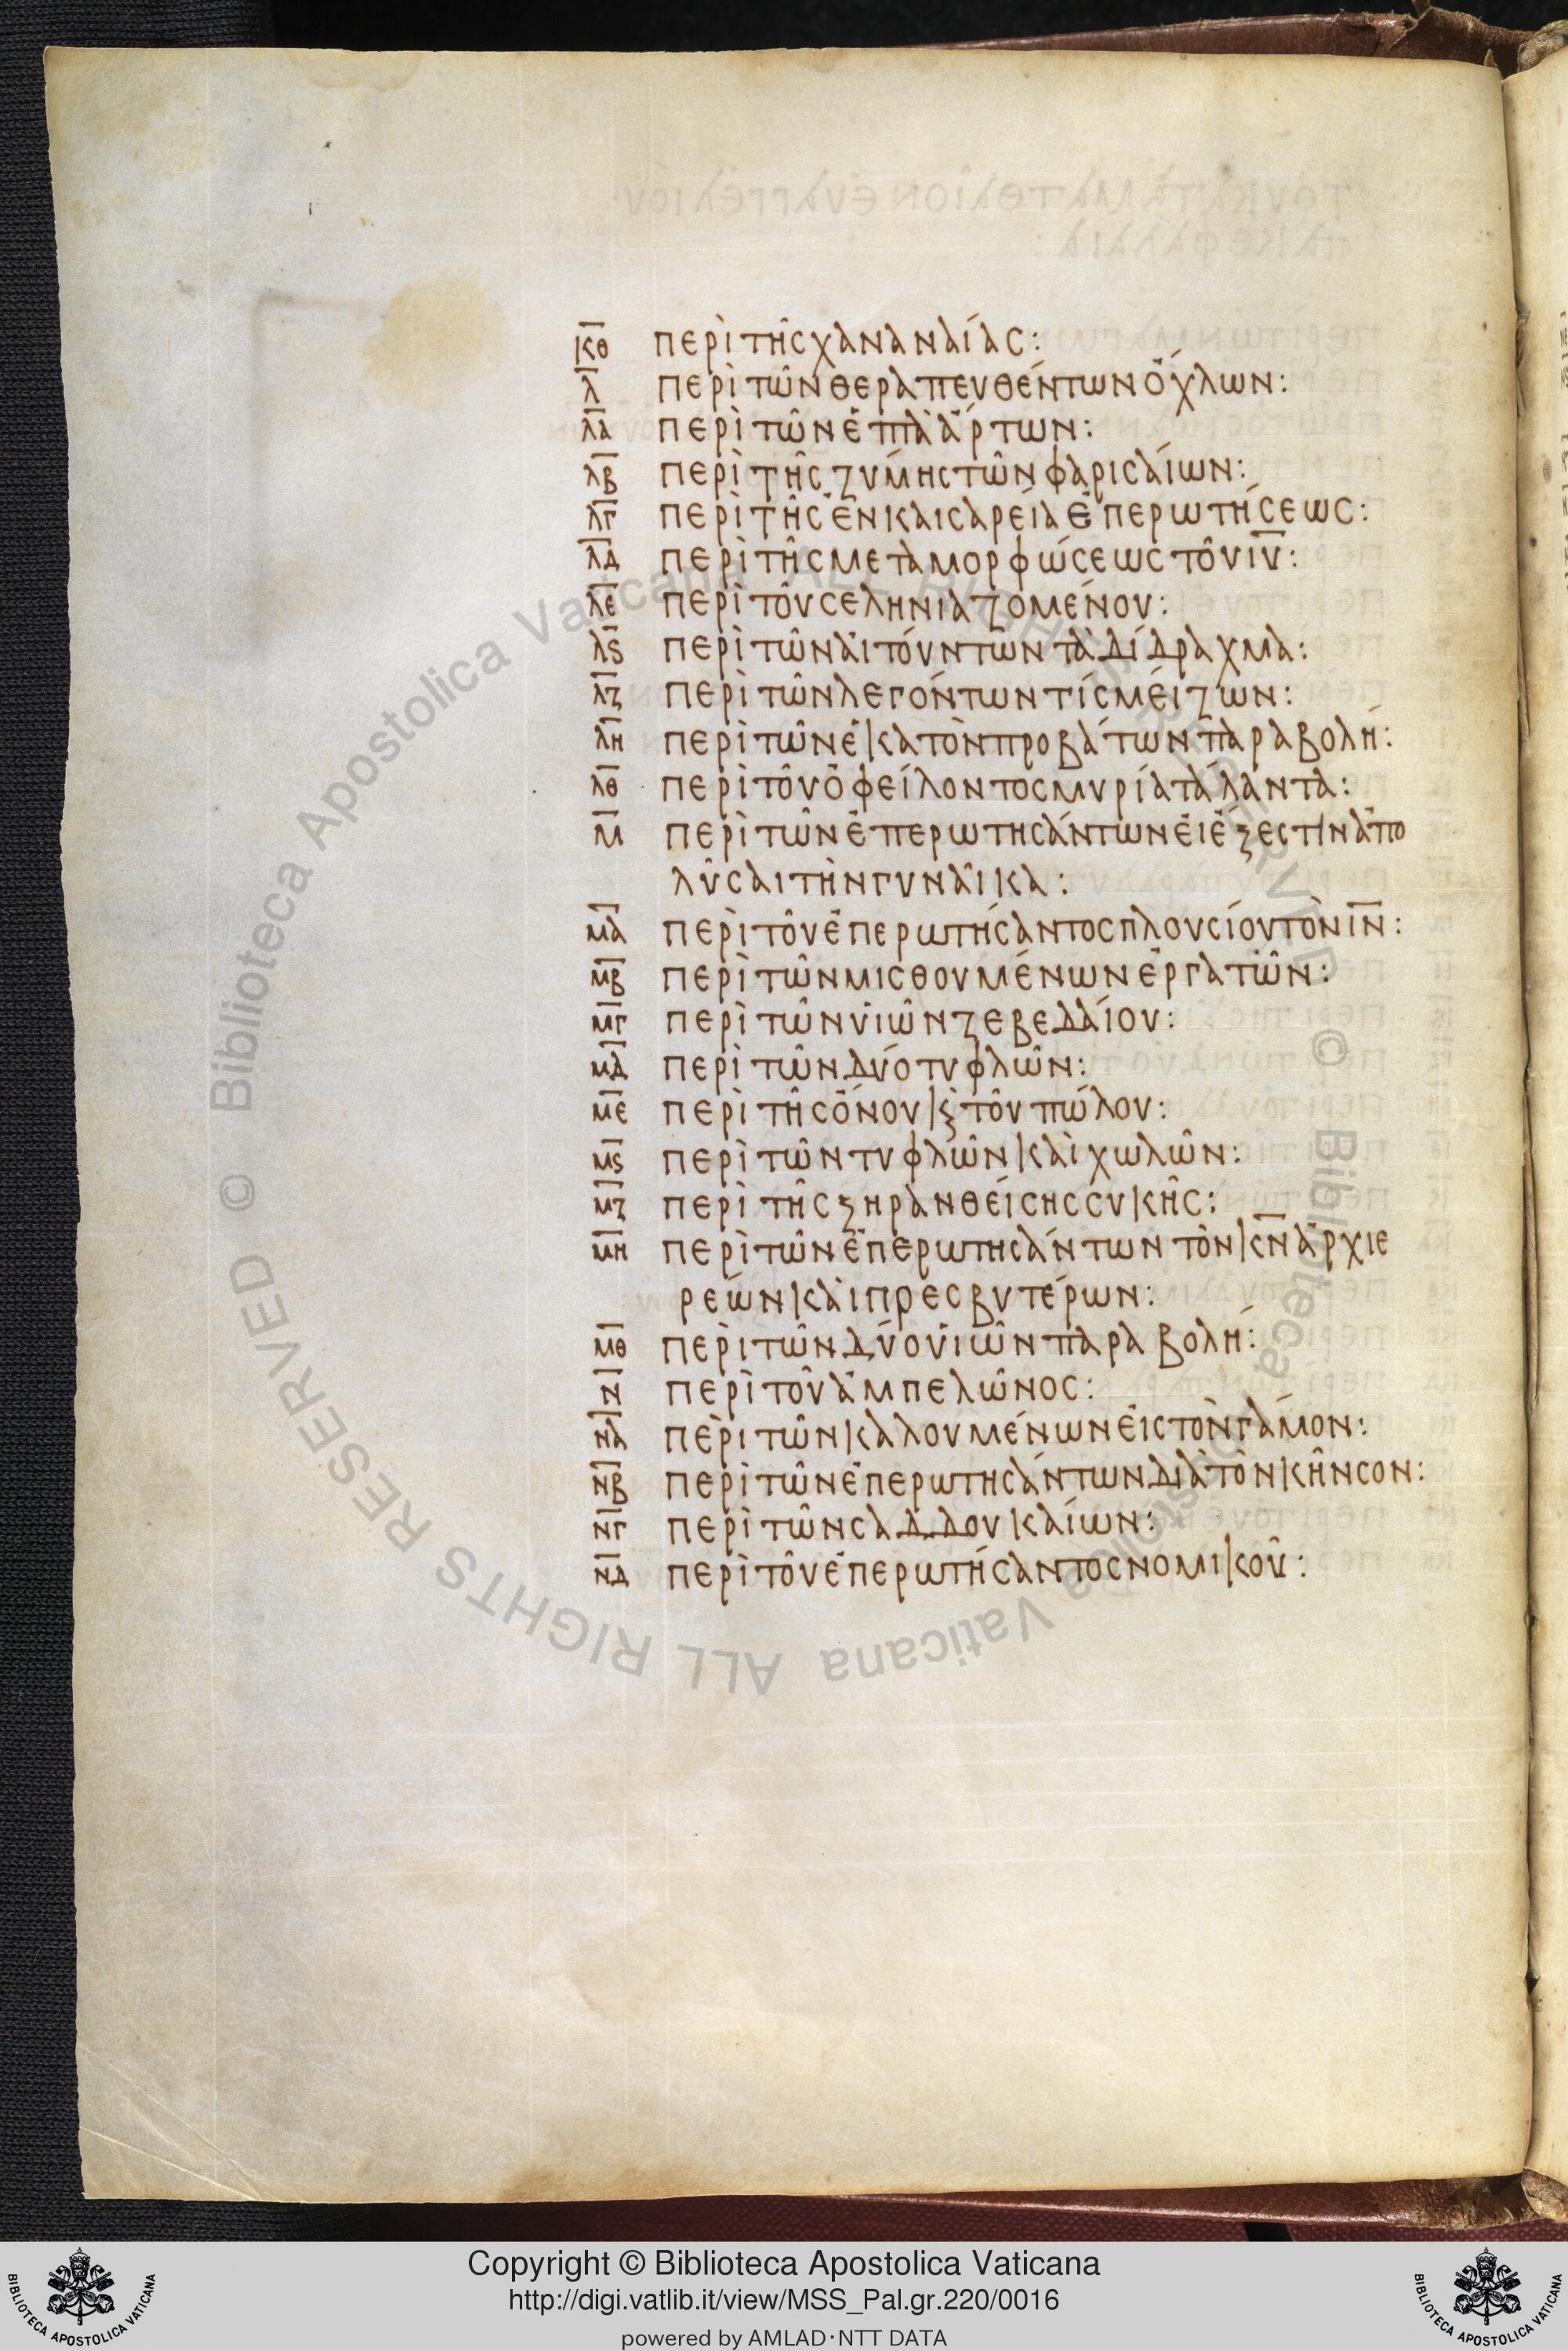 κθ περὶ τῆς χαναναίας:
λ περὶ τῶν θεραπευθέντων ὄχλων:
λα περὶ τῶν ἑπτὰ ἄρτων:
λβ περὶ τῆς ζύμης τῶν φαρισαίων:
λγ περὶ τῆς ἐν καισαρεία ἐπερωτήσεως:
λδ περὶ τῆς μεταμορφώσεως τοῦ ιυ:
λε περὶ τοῦ σεληνιαζομένου:
λϛ περὶ τῶν αἰτούντων τὰ δίδραχμα:
λζ περὶ τῶν λεγόντων τίς μείζων:
λη περὶ τῶν ἑκατὸν προβάτων παραβολή:
λθ περὶ τοῦ ὀφείλοντος μυρία τάλαντα:
μ περὶ τῶν ἐπερωτησάντων εἰ ἔξεστιν ἀπο
λῦσαι τὴν γυναῖκα:
μα περὶ τοῦ ἐπερωτήσαντος πλουσίου τὸν ιν:
μβ περὶ τῶν μισθουμένων ἐργατῶν:
μγ περὶ τῶν υἱῶν ζεβεδαίου:
μδ περὶ τῶν δύο τυφλῶν:
με περὶ τῆς ὄνου κϛ τοῦ πώλου:
μϛ περὶ τῶν τυφλῶν καὶ χωλῶν:
μζ περὶ τῆς ξηρανθείσης συκῆς:
μη περὶ τῶν ἐπερωτησάντων τὸν κν ἀρχιε
ρέων καὶ πρεσβυτέρων:
μθ περὶ τῶν δύο υἱῶν παραβολή:
ν περὶ τοῦ ἀμπελῶνος:
να περὶ τῶν καλουμένων εἰς τὸν γάμον:
νβ περὶ τῶν ἐπερωτησάντων διὰ τὸν κῆνσον:
νγ περὶ τῶν σαδδουκαίων:
νδ περὶ τοῦ ἐπερωτήσαντος νομικοῦ:
© Biblioteca Apostolica Vaticana ALL RIGHTS RESERVED
© Biblioteca Apostolica Vaticana ALL RIGHTS RESERVED
Copyright © Biblioteca Apostolica Vaticana
http://digi.vatlib.it/view/MSS_Pal.gr.220/0016
powered by AMLAD·NTT DATA
BIBLIOTECA APOSTOLICA VATICANA
BIBLIOTECA APOSTOLICA VATICANA